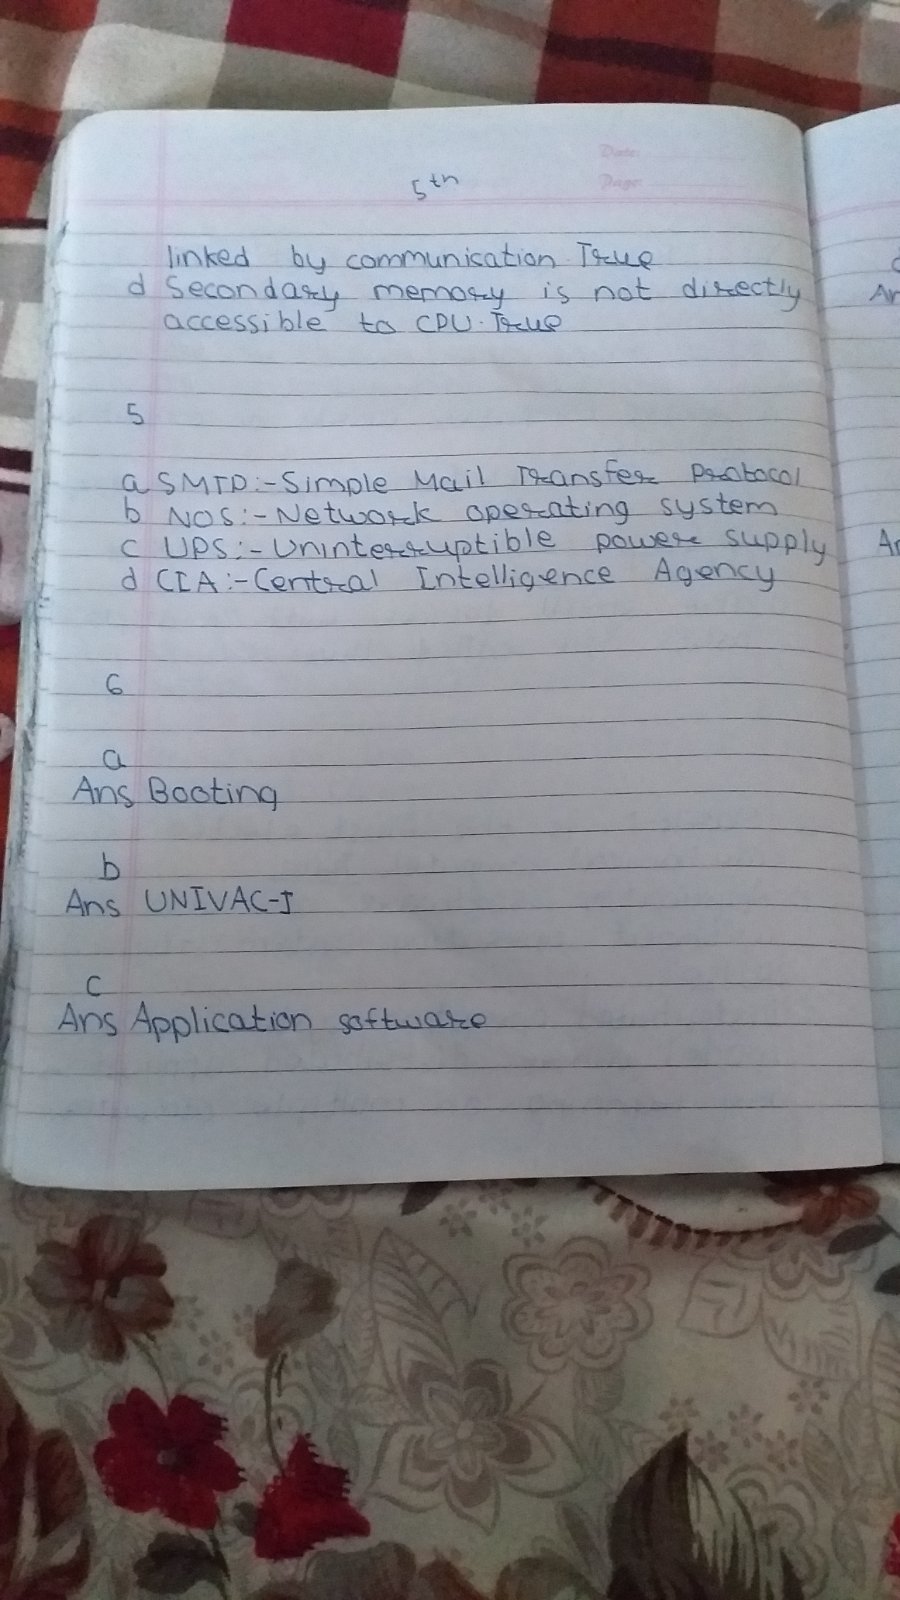 Date:
Page:
5th
linked by communication True
d Secondary memory is not directly
accessible to CPU. True
5
a SMTP:- Simple Mail Transfer Protocol
b NOS:- Network operating system
c UPS:- Uninterruptible power supply
d CIA:- Central Intelligence Agency
6
a
Ans Booting
b
Ans UNIVAC-I
c
Ans Application software